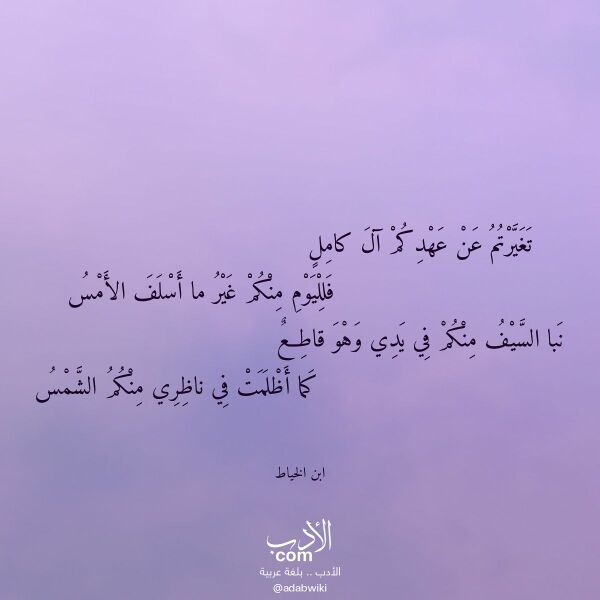 تَغَيَّرْتُمُ عَنْ عَهْدِكُمْ آلَ كامِلٍ
فَلِلْيَوْمِ مِنْكُمْ غَيْرُ ما أَسْلَفَ الأَمْسُ
نَبا السَّيْفُ مِنْكُمْ فِي يَدِي وَهْوَ قاطِعٌ
كَما أَظْلَمَتْ فِي ناظِرِي مِنْكُمُ الشَّمْسُ
ابن الخياط
الأدب
.com
الأدب .. بلغة عربية
@adabwiki